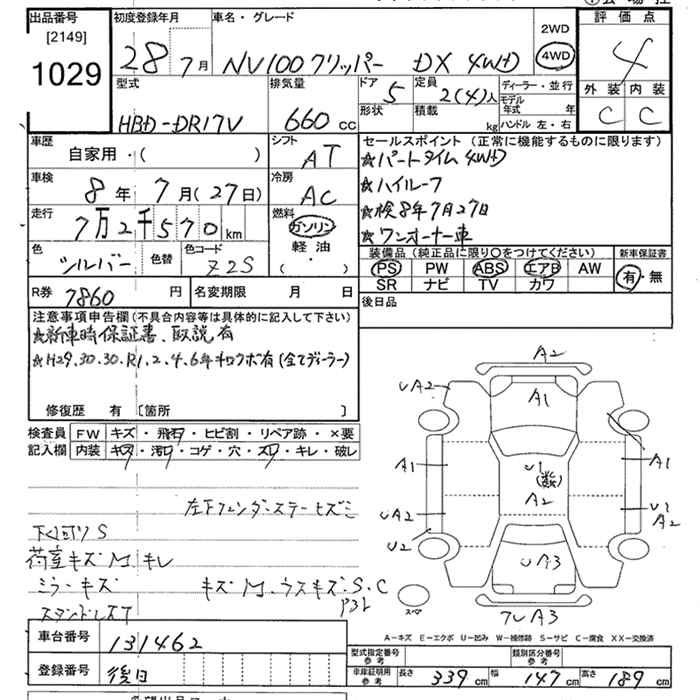 出品番号 初度登録年月 車名・グレード 評価点
[2149] 2WD
1029 28年 7月 NV100クリッパー DX 4WD 4WD 4
型式 排気量 ドア 定員 ディーラー・並行 外装 内装
5 2(4)人 モデル年式 年 C C
HBD-DR17V 660cc 形状 積載 kg ハンドル 左・右
車歴 シフト セールスポイント(正常に機能するものに限ります)
自家用・( ) AT ☆パートタイム 4WD
車検 冷房 ☆ハイルーフ
8年 7月(27日) AC ☆検8年7月27日
走行 燃料 ☆ワンオーナー車
7万2千570km ガソリン
色 色替 色コード 軽油・ 装備品(純正品に限り〇をつけてください) 新車保証書
シルバー Z2S ( ) PS PW ABS エアB AW 有・無
SR ナビ TV カワ
R券 7860円 名変期限 月 日 後日品
注意事項申告欄(不具合内容等は具体的に記入して下さい)
☆新車時保証書、取説有
☆H29.30.30.R1.2.4.6年キロクボ有(全てディーラー)
修復歴 有 [箇所 ]
検査員 FW キズ・飛石・ヒビ割・リペア跡・×要
記入欄 内装 キズ・汚れ・コゲ・穴・スレ・キレ・破レ
A2
UA2 A1
A1 U1 (数) A1
UA2 A2 U1 A2
U2
UA3
スペア
左下フェンダーステーヒズミ
下廻りS
荷室キズM.キレ
ミラーキズ キズM.ウスキズ.S.C
A-キズ E-エクボ U-凹み W-補修跡 S-サビ C-腐食 XX-交換済
車台番号 131462
登録番号 後日
型式指定番号 参考 類別区分番号 参考
車庫証明用 参考 長さ 339cm 幅 147cm 高さ 189cm